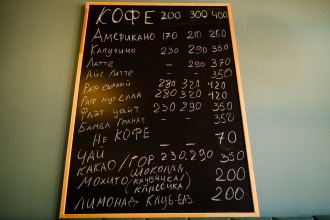 КОФЕ 200 300 400
Американо 170 210 250
Капучино 230 290 350
Латте – 290 370
Айс латте – – 350
Раф сырный 280 320 420
Раф нутелла 280 320 420
Флэт уайт 230 290 350
Бамбл гранат – – 350
Не кофе – 70
Чай
Какао/гор. шоколад 230 290 350
Мохито (клубника/ 200
классика)
Лимонад клуб-баз. 200